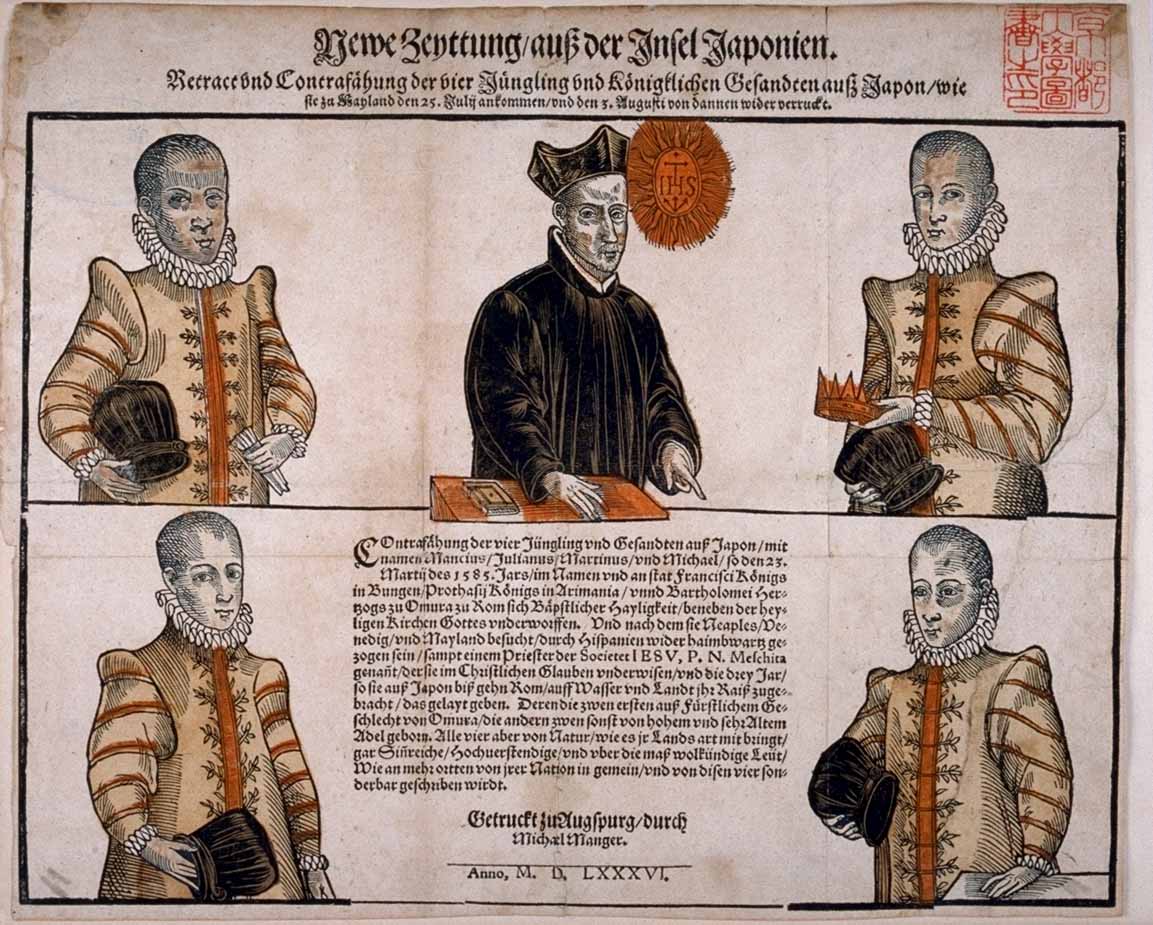 Newe Zeyttung/auß der Insel Japonien.
Retract vnd Contrafähung der vier Jüngling vnd Königklichen Gesandten auß Japon/wie
sie zu Mayland den 25. Julij ankommen/vnd den 3. Augusti von dannen wider verruckt.
京都
帝國大學圖
書之印
IHS
COntrafähung der vier Jüngling vnd Gesandten auß Japon/mit
namen Mancius/Julianus/Martinus/vnd Michael/so den 23.
Martij des 1585. Jars/im Namen vnd an stat Francisci Königs
in Bungen/Prothasij Königs in Arimania/vnnd Bartholomei Her-
tzogs zu Omura zu Rom sich Bäpstlicher Hayligkeit/beneben der hey-
ligen Kirchen Gottes vnderworffen. Vnd nach dem sie Neaples/Ve-
nedig/vnd Mayland besucht/durch Hispanien wider haimbwartz ge-
zogen sein/sampt einem Priester der Societet IESV, P. N. Meschita
genañt/der sie im Christlichen Glauben vnderwisen/vnd die drey Jar/
so sie auß Japon biß gehn Rom/auff Wasser vnd Landt jhr Raiß zuge-
bracht/das gelayt geben. Deren die zwen ersten auß Fürstlichem Ge-
schlecht von Omura/die andern zwen sonst von hohem vnd sehr Altem
Adel geborn. Alle vier aber von Natur/wie es jr Lands art mit bringt/
gar Siñreiche/Hochuerstendige/vnd vber die maß wolkündige Leüt/
Wie an mehr ortten von jrer Nation in gemein/vnd von disen vier son-
derbar geschriben wirdt.
Getruckt zu Augspurg/durch
Michael Manger.
Anno, M. D. LXXXVI.